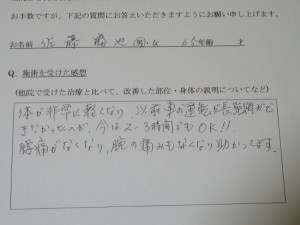 お手数ですが、下記の質問にお答えいただきますようにお願い申し上げます。
お名前 佐藤 男・女 65年齢 才
Q. 施術を受けた感想
(他院で受けた治療と比べて、改善した部位・身体の説明についてなど)
体が非常に軽くなり、以前車の運転が長時間ができなかったのが、
今は2〜3時間でもOK!!
腰痛がなくなり、腕の痛みもなくなり助かってます。